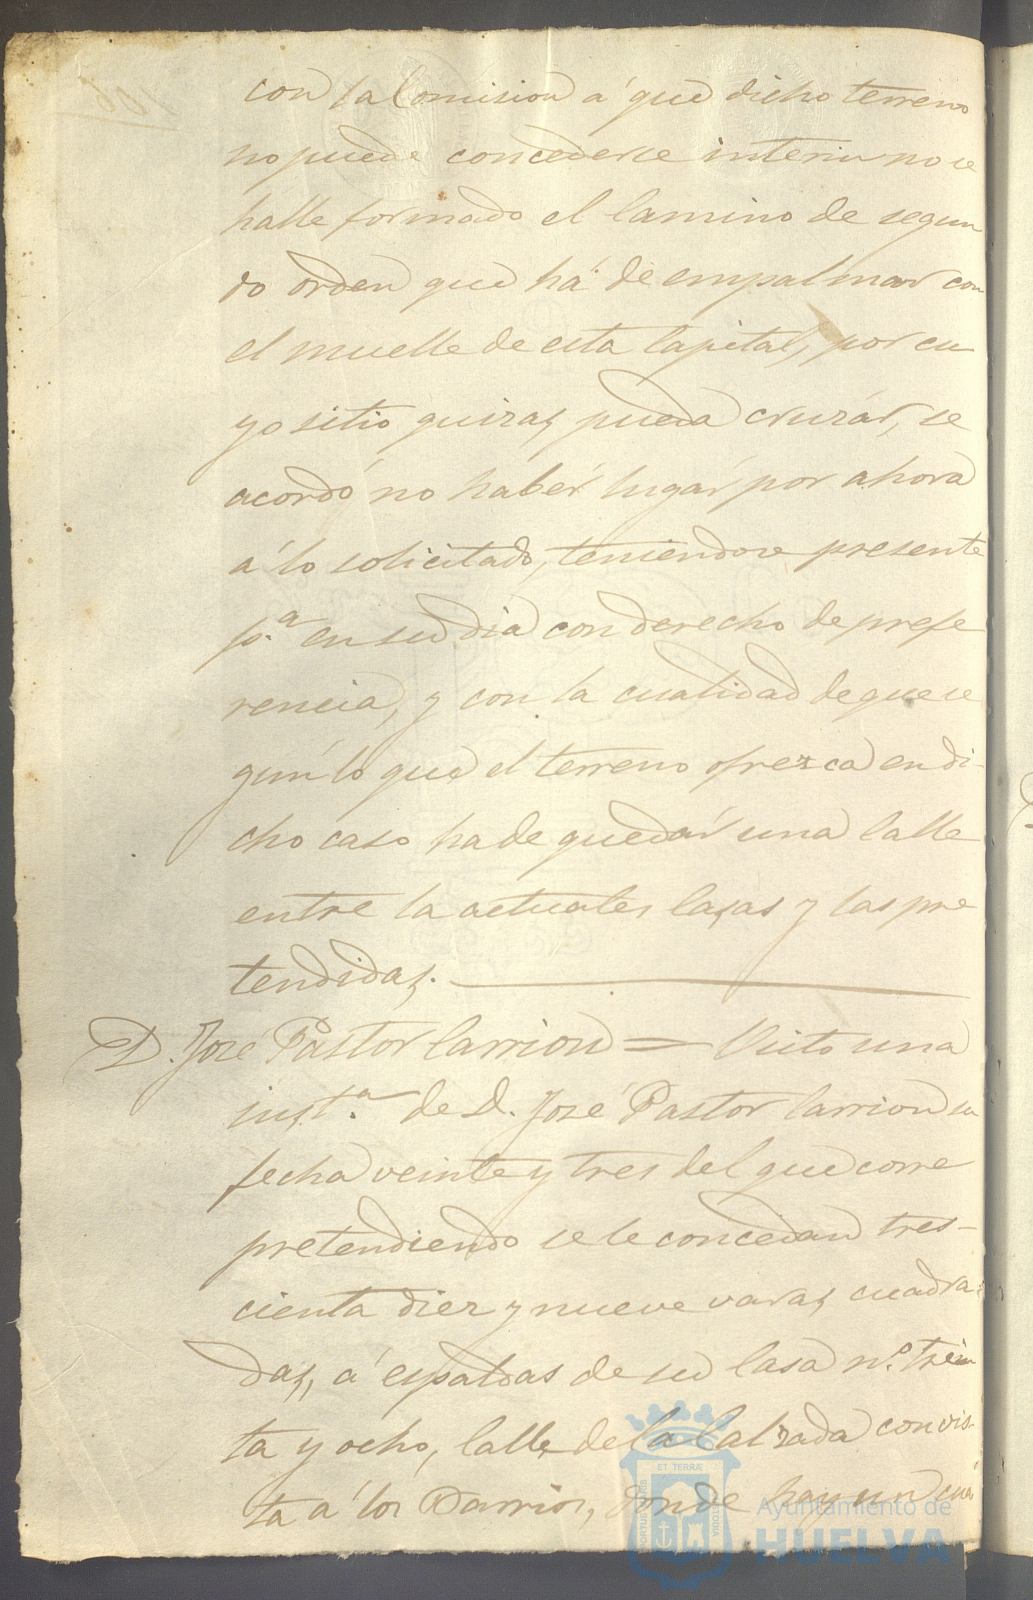 con la Comision á que dicho terreno
no puede concederse interin no se
halle formado el Camino de segun
do orden que há de empalmar con
el muelle de esta Capital, por cu
yo sitio quizas pueda cruzár, se
acordó no habér lugár por ahora
á lo solicitado, teniendose presente
p.ª en su dia con derecho de prefe
rencia, y con la cualidad de que se
gún lo que el terreno ofrezca en di-
cho caso ha de quedár una Calle
entre la actuales Casas y las pre
tendidas.
D. José Pastor Carrion = Visto una
inst.ª de D. José Pastor Carrion su
fecha veinte y tres del que corre
pretendiendo se le concedan tres-
cienta diez y nueve varas cuadra-
das, á espaldas de su Casa n.º trein
ta y ocho, Calle de la Calzada con vis-
ta á los Barrios, donde hay un cua
PORTUS MARIS ET TERRÆ CUSTODIA
Ayuntamiento de
HUELVA